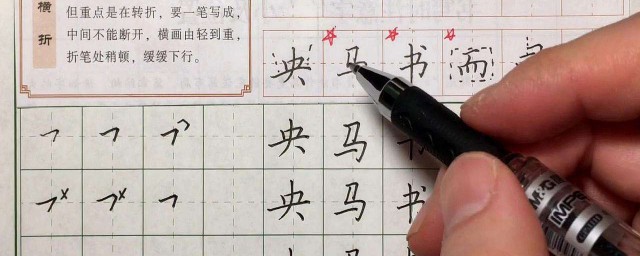 横折
但重点是在转折，要一笔写成，
中间不能断开，横画由轻到重，
折笔处稍顿，缓缓下行。
央 马 书 而
央 马 书
央 马 书